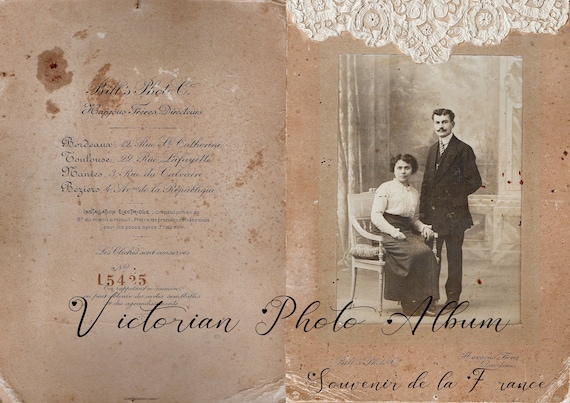 Bill's Phot Cº
Hanjous Frères Directeurs
Bordeaux, 22, Rue Ste Catherine
Toulouse, 29, Rue Lafayette
Nantes, 3, Rue du Calvaire
Béziers, 4, Avue de la République
INSTALLATION ÉLECTRIQUE
Les Clichés sont conservés
Nº
15425
Victorian Photo Album
Bill's Phot Cº
Souvenir de la France